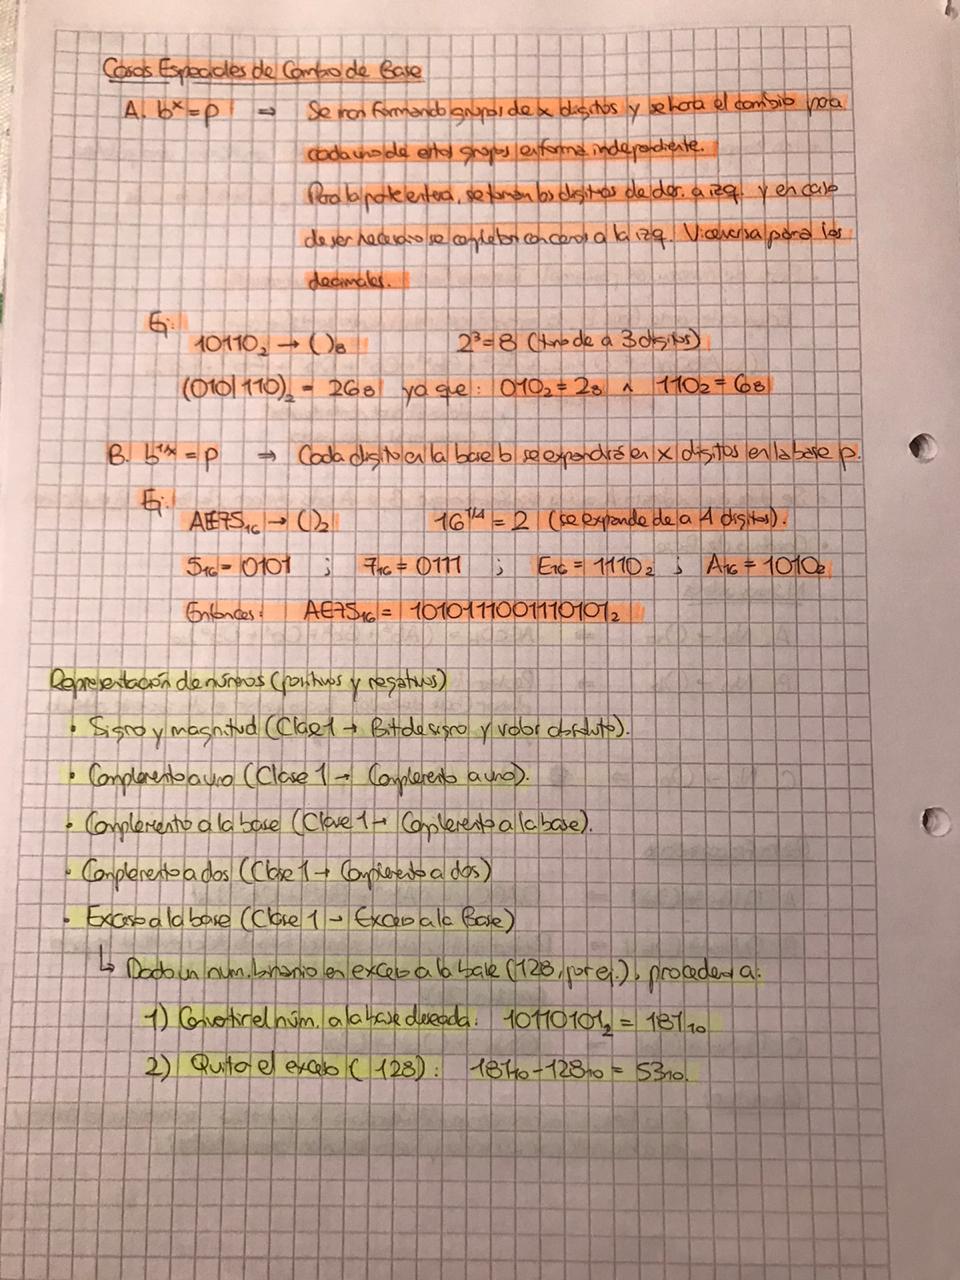 Casos Especiales de Cambio de Base
A. bˣ = p → Se iran formando grupos de x digitos y se hará el cambio para
cada uno de estos grupos en forma independiente.
Para la parte entera, se toman los digitos de der. a izq. y en caso
de ser necesario se completan con ceros a la izq. Viceversa para los
decimales.
Ej:
10110₂ → ( )₈ 2³ = 8 (tomo de a 3 digitos)
(010|110)₂ = 26₈ ya que: 010₂ = 2₈ ∧ 110₂ = 6₈
B. b^1/x = p → Cada digito en la base b se expandirá en x digitos en la base p.
Ej:
AE75₁₆ → ( )₂ 16^1/4 = 2 (se expande de a 4 digitos).
5₁₆ = 0101 ; 7₁₆ = 0111 ; E₁₆ = 1110₂ ; A₁₆ = 1010₂
Entonces: AE75₁₆ = 1010111001110101₂
Representación de números (positivos y negativos)
• Signo y magnitud (Clase 1 → Bit de signo y valor absoluto).
• Complemento a uno (Clase 1 → Complemento a uno).
• Complemento a la base (Clase 1 → Complemento a la base).
• Complemento a dos (Clase 1 → Complemento a dos)
• Exceso a la base (Clase 1 → Exceso a la Base)
↳ Dado un num. binario en exceso a la base (128, por ej.), procedera a:
1) Convertir el núm. a la base deseada: 10110101₂ = 181₁₀
2) Quito el exceso (128): 181₁₀ - 128₁₀ = 53₁₀.